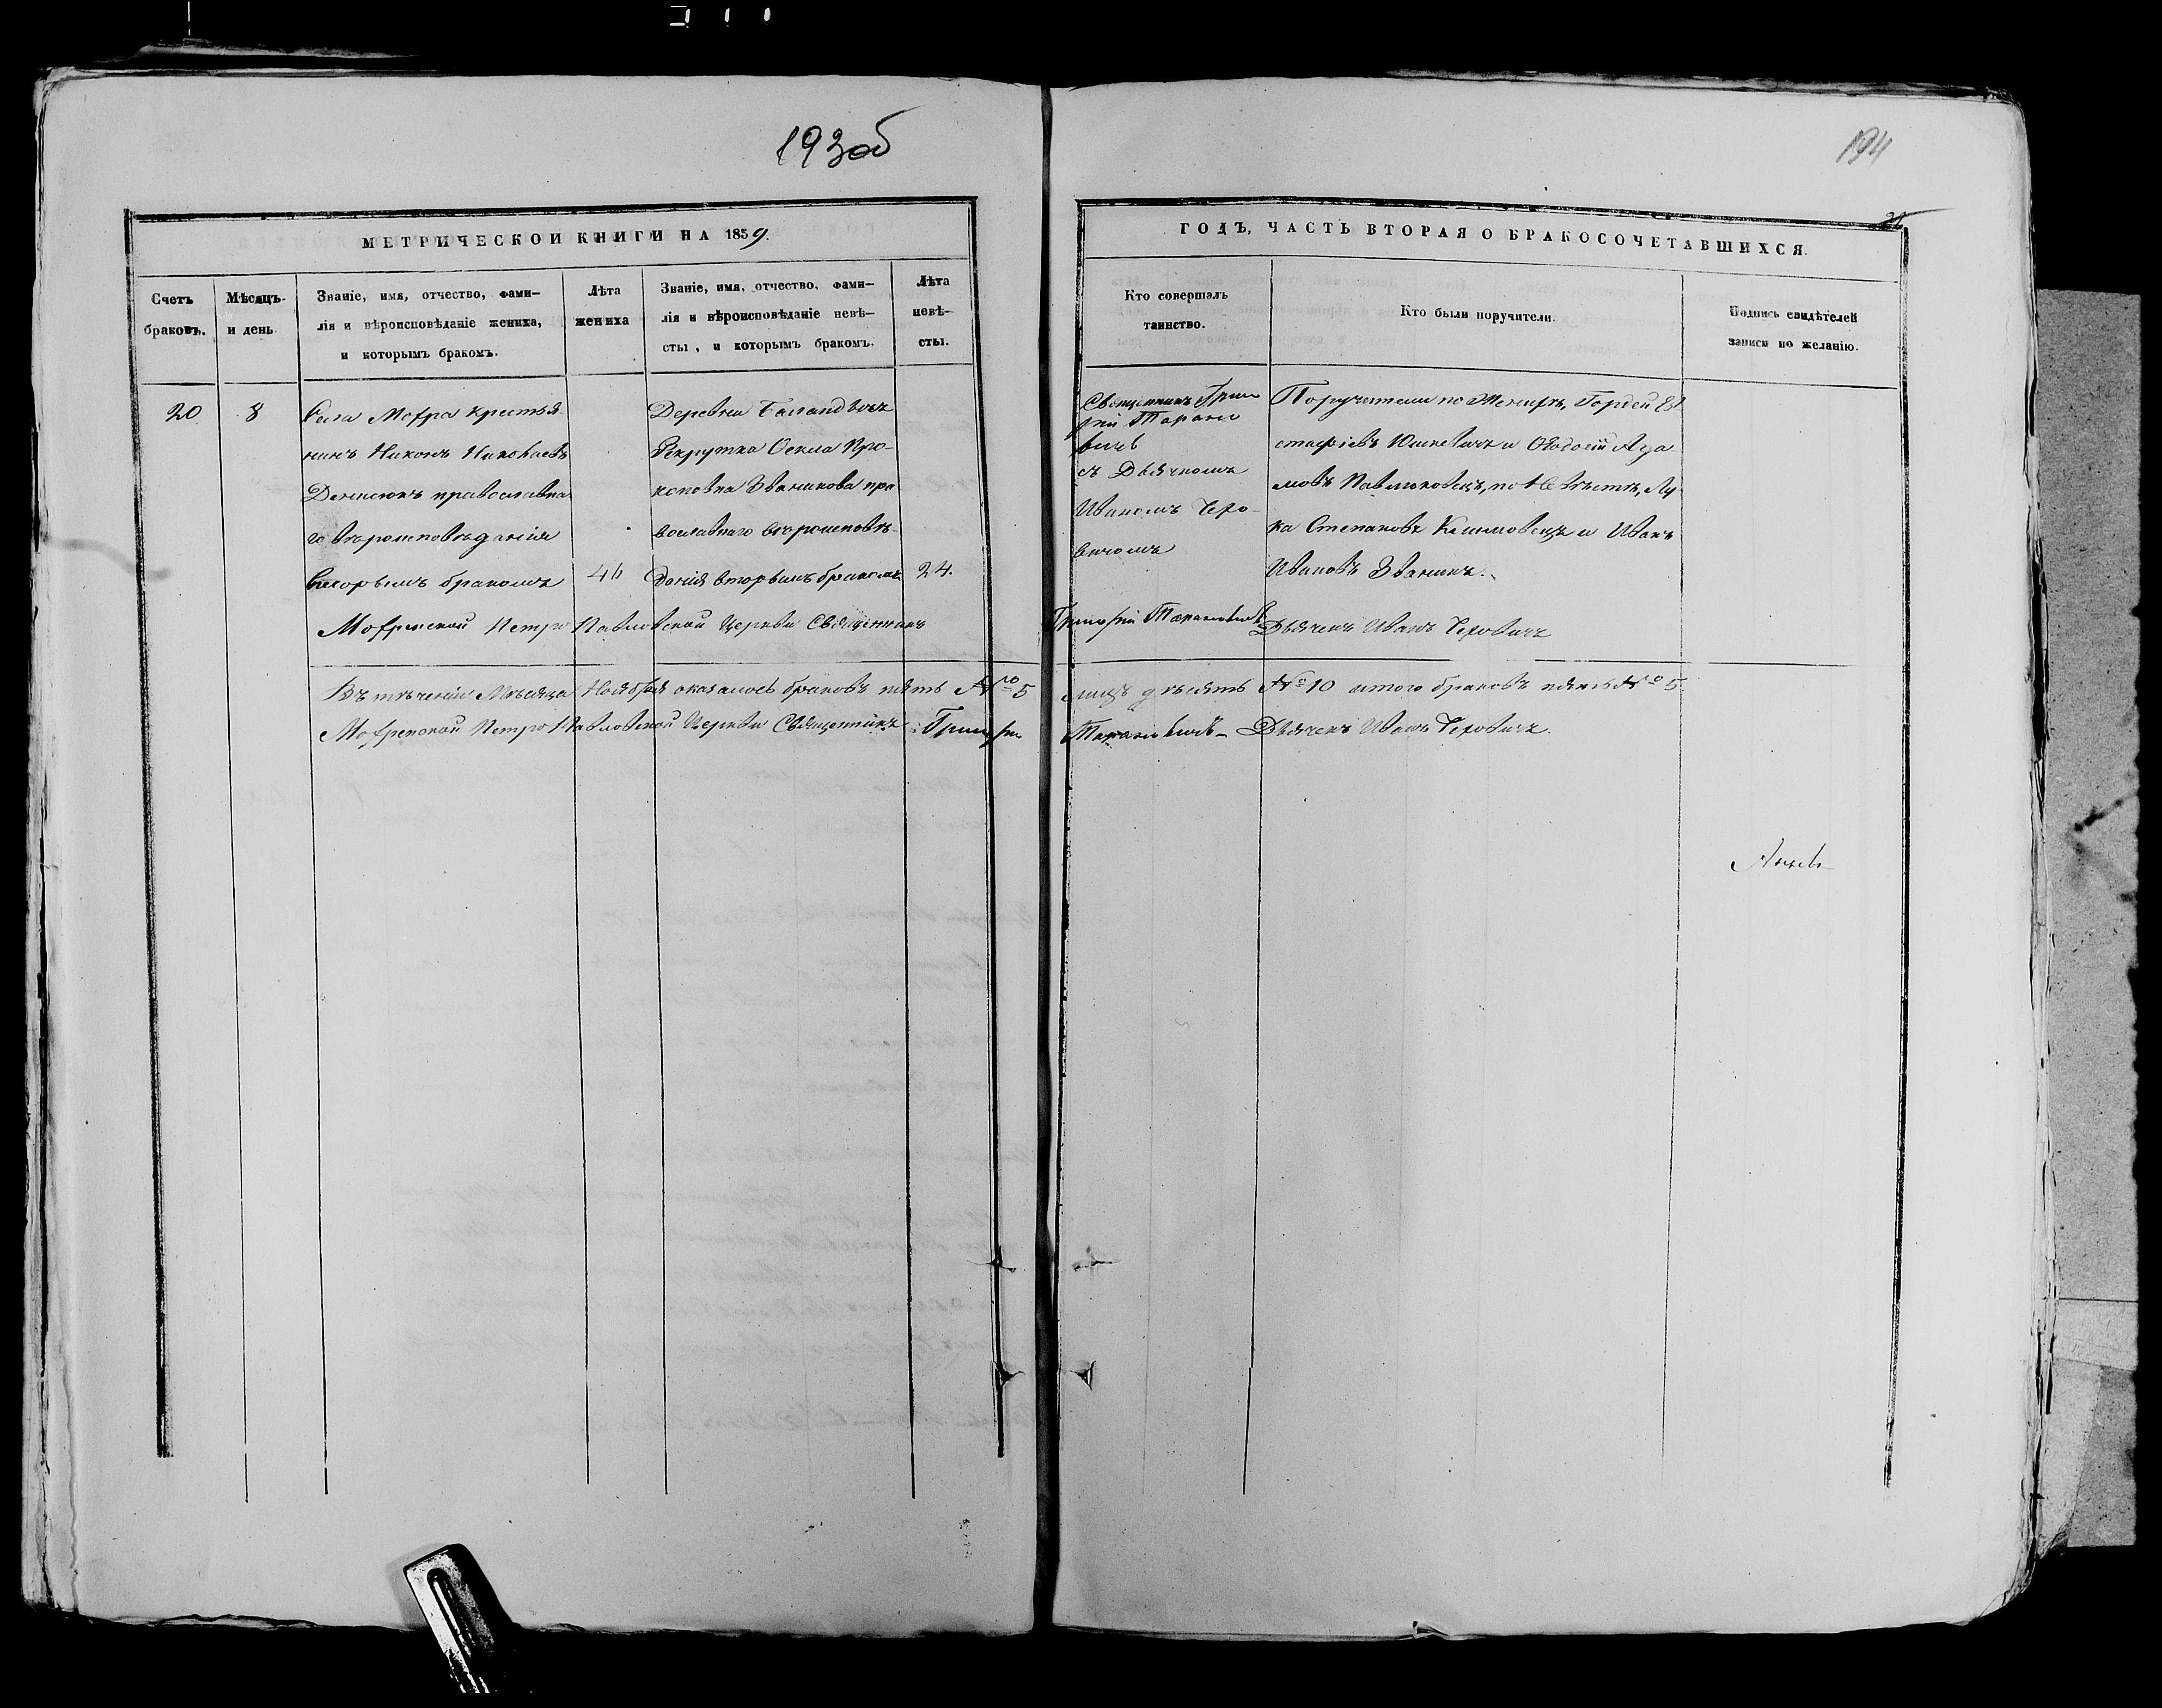 193об
194
МЕТРИЧЕСКОЙ КНИГИ НА 1859
ГОДЪ, ЧАСТЬ ВТОРАЯ О БРАКОСОЧЕТАВШИХСЯ.
Счетъ
браковъ.
Мѣсяцъ
и день
Званіе, имя, отчество, фами-
лія и вѣроисповѣданіе жениха,
и которымъ бракомъ.
Лѣта
жениха
Званіе, имя, отчество, фами-
лія и вѣроисповѣданіе невѣ-
сты, и которымъ бракомъ.
Лѣта
невѣ-
сты.
Кто совершалъ
таинство.
Кто были поручители.
Подпись свидѣтелей
записи по желанію.
20
8
Села Мофра крестья
нинъ Никонъ Николаевъ
Денисюкъ православна
го вѣроисповѣданія
вторымъ бракомъ
46
Деревни
Рекрутка Оекла Про-
коповна Званикова пра
вославнаго вѣроисповѣ-
данія вторымъ бракомъ
24.
Священникъ Григо
рій Таранo
вичъ
съ Дьячкомъ
Иваномъ Черо-
вичомъ
Поручители по Женихѣ, Гордей Ев
стафіевъ Юшкевичъ и Ѳеодосій Ада
мовъ Павлюковецъ, по Невѣстѣ, Лу
ка Степановъ Климовецъ и Иванъ
Ивановъ Званикъ.
Мофренской Петро Павловской Церкви Священникъ
Григорій Тарановичъ Дьячекъ Иванъ Черовичъ
Въ теченіи Мѣсяца Ноября оказалось браковъ пять № 5
лицъ десять № 10 итого браковъ пять № 5
Мофренской Петро Павловской Церкви Священникъ Григорій
Тарановичъ - Дьячекъ Иванъ Черовичъ.